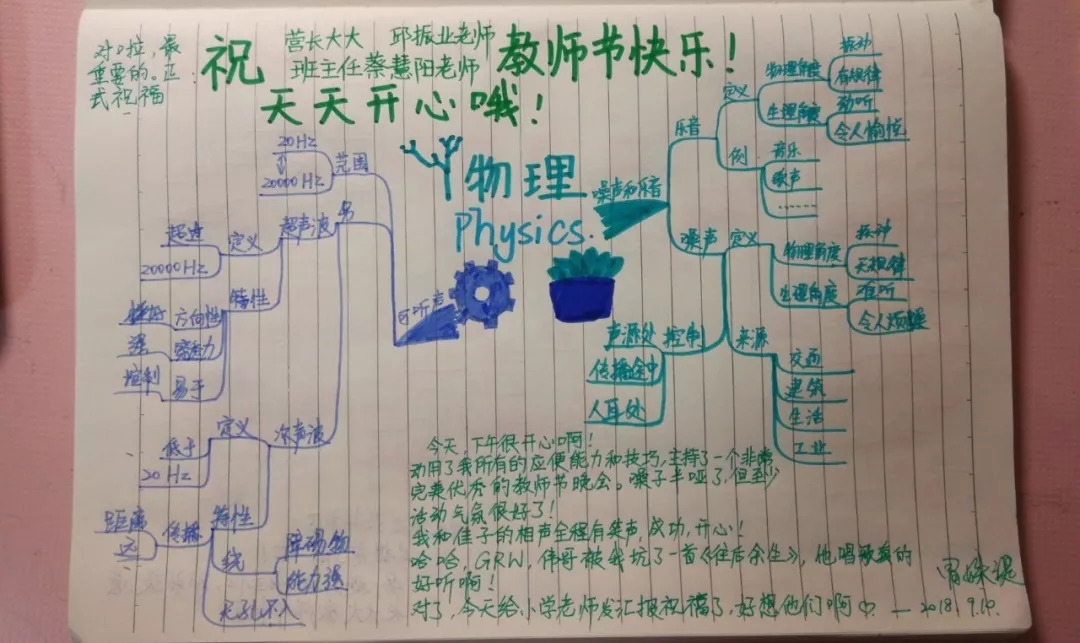 对了啦，最
重要的。正
式祝福：
祝 营长大大 邱振业老师
班主任蔡慧阳老师 教师节快乐！
天天开心哦！
物理
Physics.
可听声
范围
20Hz
20000Hz
超声波
定义
超过
20000Hz
特性
方向性
好
穿透力
强
易于
控制
次声波
定义
低于
20Hz
特性
传播
距离
远
绕
障碍物
能力强
无孔不入
噪声和乐音
乐音
定义
物理角度
振动
有规律
生理角度
动听
令人愉悦
例
音乐
歌声
……
噪声
定义
物理角度
振动
无规律
生理角度
难听
令人烦躁
来源
交通
建筑
生活
工业
控制
声源处
传播途中
人耳处
今天，下午很开心啊！
动用了我所有的应便能力和技巧，主持了一个非常
完美优秀的教师节晚会。嗓子半哑了，但至少
活动气氛很好了！
我和佳子的相声全程有笑声，成功，开心！
哈哈，GRW，伟哥被我坑了一首《往后余生》，他唱歌真的
好听啊！
对了，今天给小学老师发汇报祝福了，好想他们啊♡。—2018.9.10.